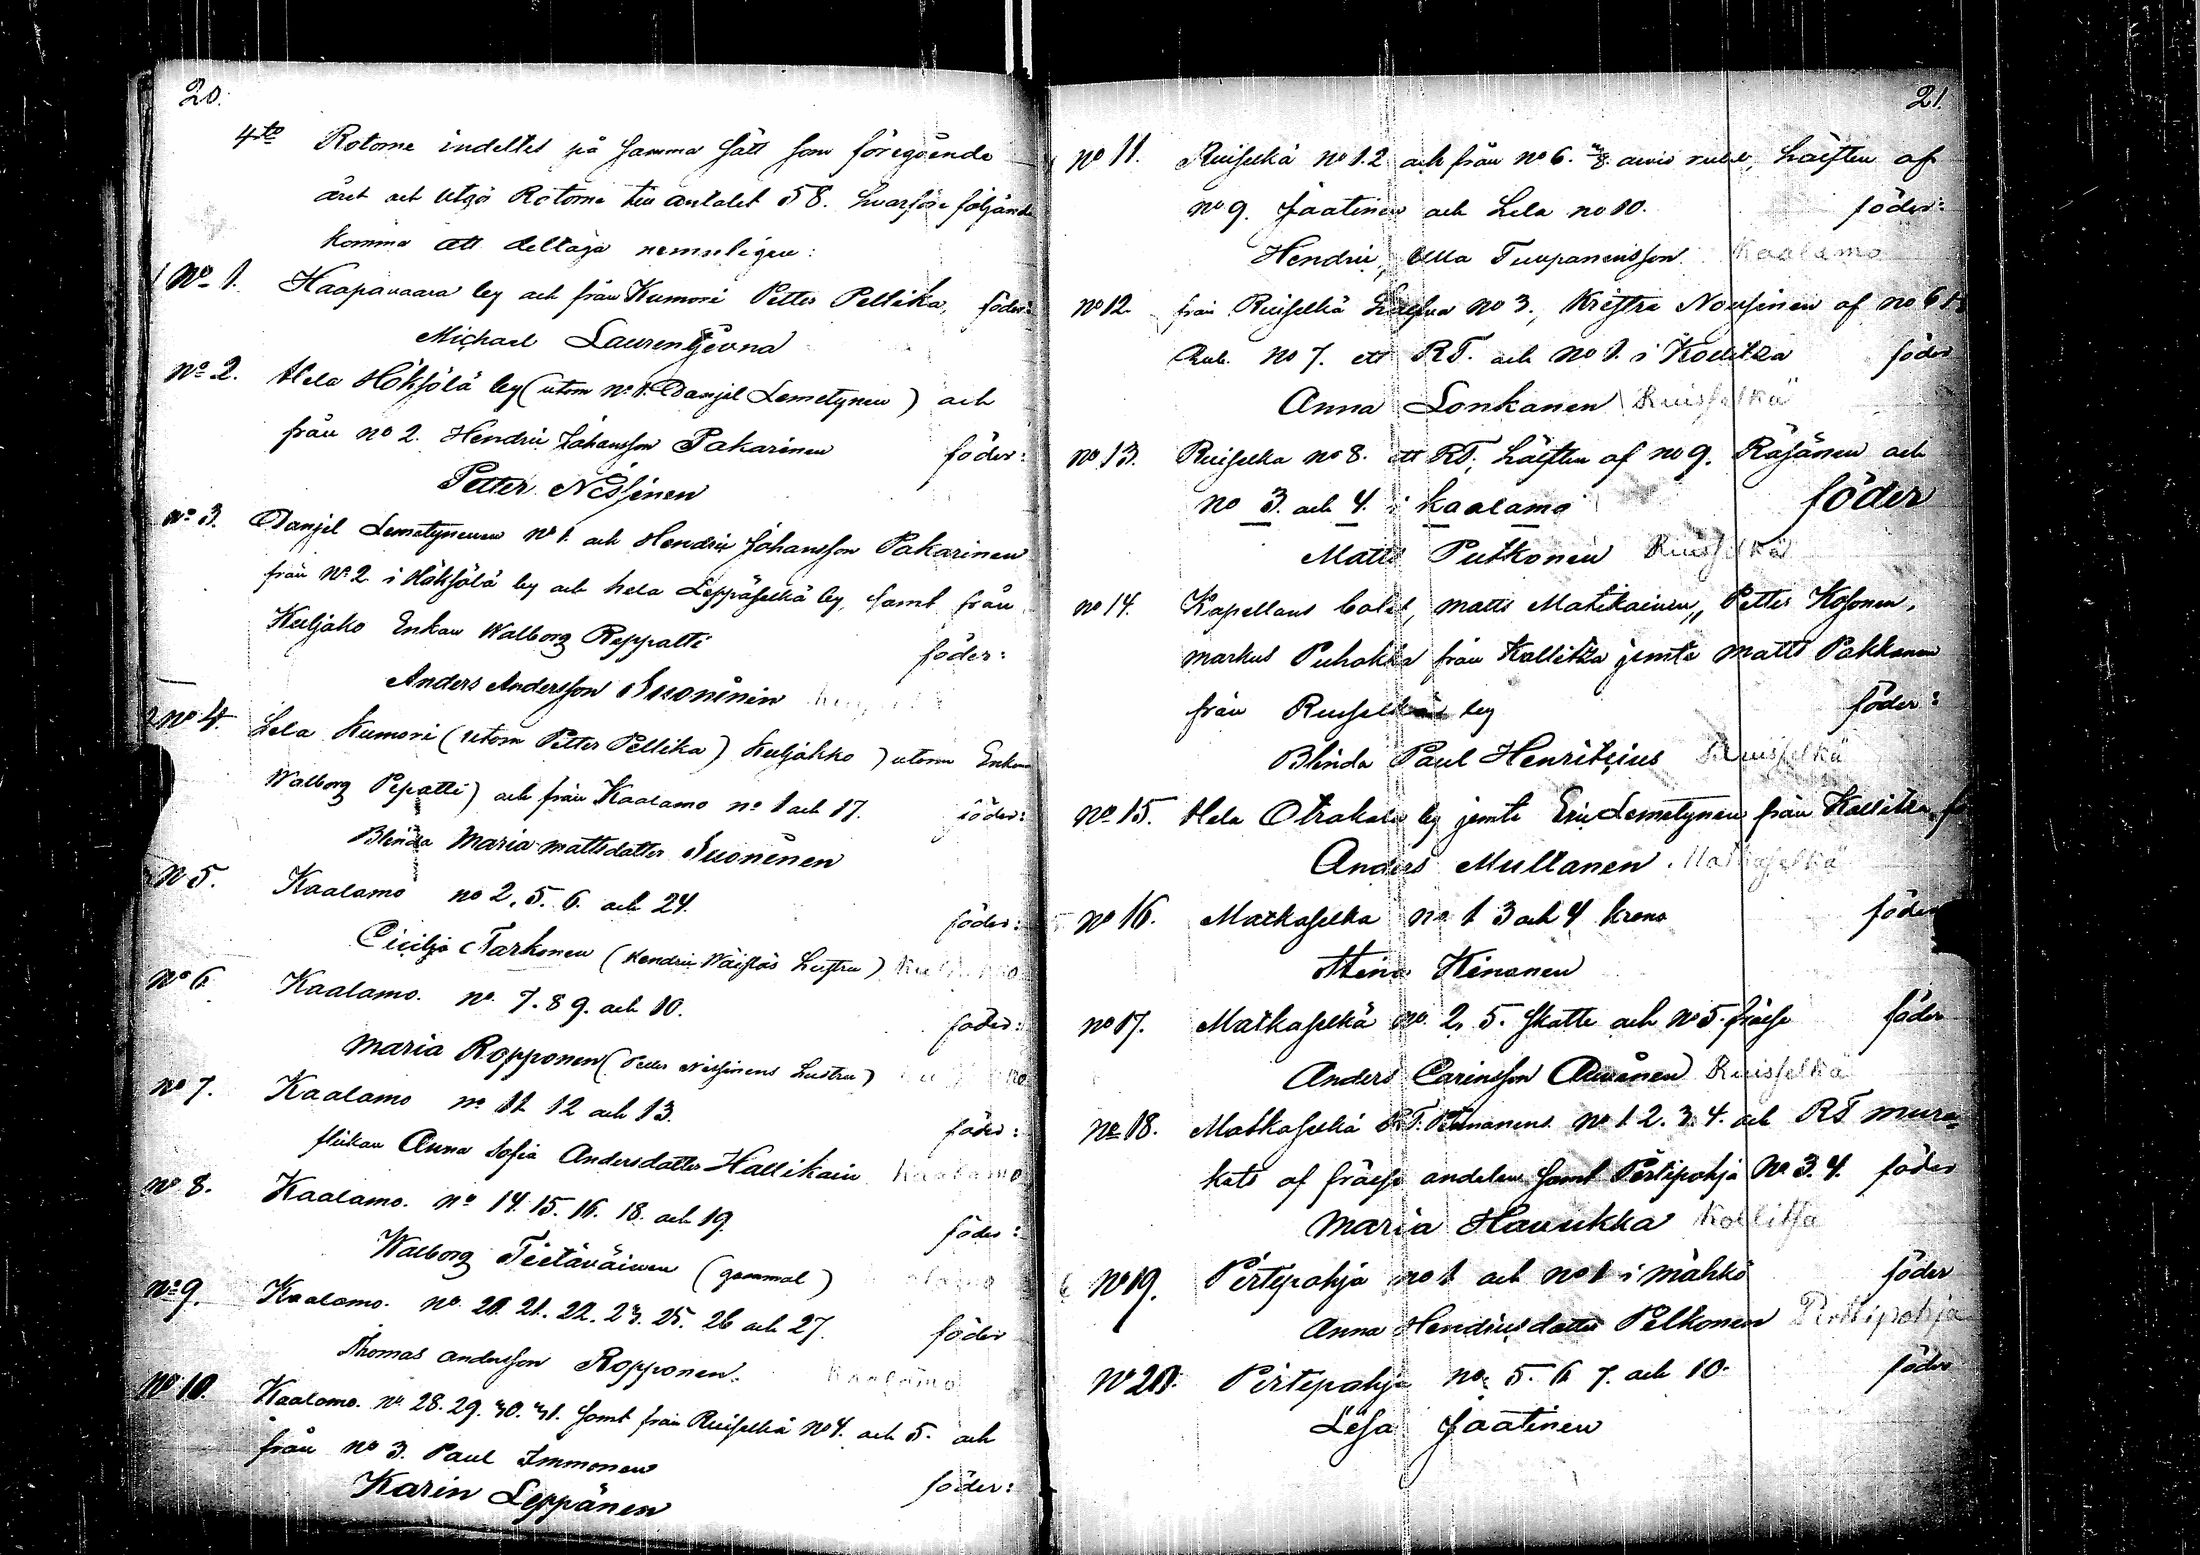 20.
4to Rotorne indeltes på samma sätt som föregående
året och utgör Rotorne till antalet 58. hvarföre följande
komma att deltaga nemnligen:
No 1. Haapavaara by och från Kumori Petter Pellika, föder:
Michael Laurentjevna
No 2. Hela Höksölä by (utom No 1. Danjel Lemetynen) och
från no 2. Hendric Johansson Pakarinen föder:
Petter Nissinen
No 3. Danjel Lemetynenen No 1. och Hendric Johansson Pakarinen
från No 2 i Höksölä by och hela Leppäselkä by, samt från
Kuljako Enkan Walborg Reppatti föder:
Anders Andersson Suoninin
No 4. Hela Kumori (utom Petter Pellika) Kuljakko ) utom Enkan
Walborg Pepatti) och från Kaalamo no 1 och 17. föder:
Blinda Maria mattsdotter Suoninen
No 5. Kaalamo no 2, 5. 6. och 24. föder:
Cicilja Tarkonen (Hendric Wäistös hustru)
No 6. Kaalamo. no. 7. 8 9. och 10. föder:
Maria Ropponen (Petter Nissinens hustru)
No 7. Kaalamo no 11 12 och 13. föder:
flickan Anna Sofia Andersdotter Hallikain Kaalamo
No 8. Kaalamo. no 14. 15. 16. 18. och 19. föder:
Walborg Tietäväinen (gammal)
No 9. Kaalamo. no. 20. 21. 22. 23. 25. 26 och 27. föder
Thomas andersson Ropponen. Kaalamo
No 10. Kaalamo. No 28. 29. 30. 31. samt från Ruiselkä No 4. och 5. och
från no 3. Paul Immonen föder:
Karin Leppänen
21.
No 11. Ruiselkä no 1. 2 och från no 6. rubel, hälften af
No 9. Jaatinen och hela no 10. föder:
Hendric, Ulla Turpanensson Kaalamo
No 12. från Ruiselkä no 3., Kristra Nousinen af no 6
Rub. No 7. ett RT. och No 1. i Kollitza föder
Anna Lonkanen Ruisselkä
No 13. Ruiselkä no 8. ett RT, hälften af no 9. Räsänen och
no 3. och 4. i kaalamo föder
Matts Putkonen Ruisselkä
No 14. Kapellans bolet, matts Matikainen, Petter Kosonen,
markus Puhakka från Kollitza jemte matts Pakkanen
från Ruiselkä by föder:
Blinda Paul Henritzius Ruisselkä
No 15. Hela Otrakala by jemte Eric Lemetynen från Kollitza f
Anders Mullanen. Matkaselkä
No 16. Matkaselkä no 1 3 och 4 krono föder
Stina Hinonen
No 17. Matkaselkä no. 2, 5. skatte och No 5. frälse föder
Anders Carinsson Auvånen Ruisselkä
No 18. Matkaselkä RT. No 1. 2. 3. 4. och RT mura-
kato af frälse andelen samt Pirtipohja No 3. 4. föder
Maria Havukka Kollitsa
No 19. Pirtipohja no 1 och no 1 i mähkö föder
Anna Hendricsdotter Pelkonen Pirttipohja
No 20. Pirtipohja no: 5. 6. 7. och 10. föder
Lesa Jaatinen